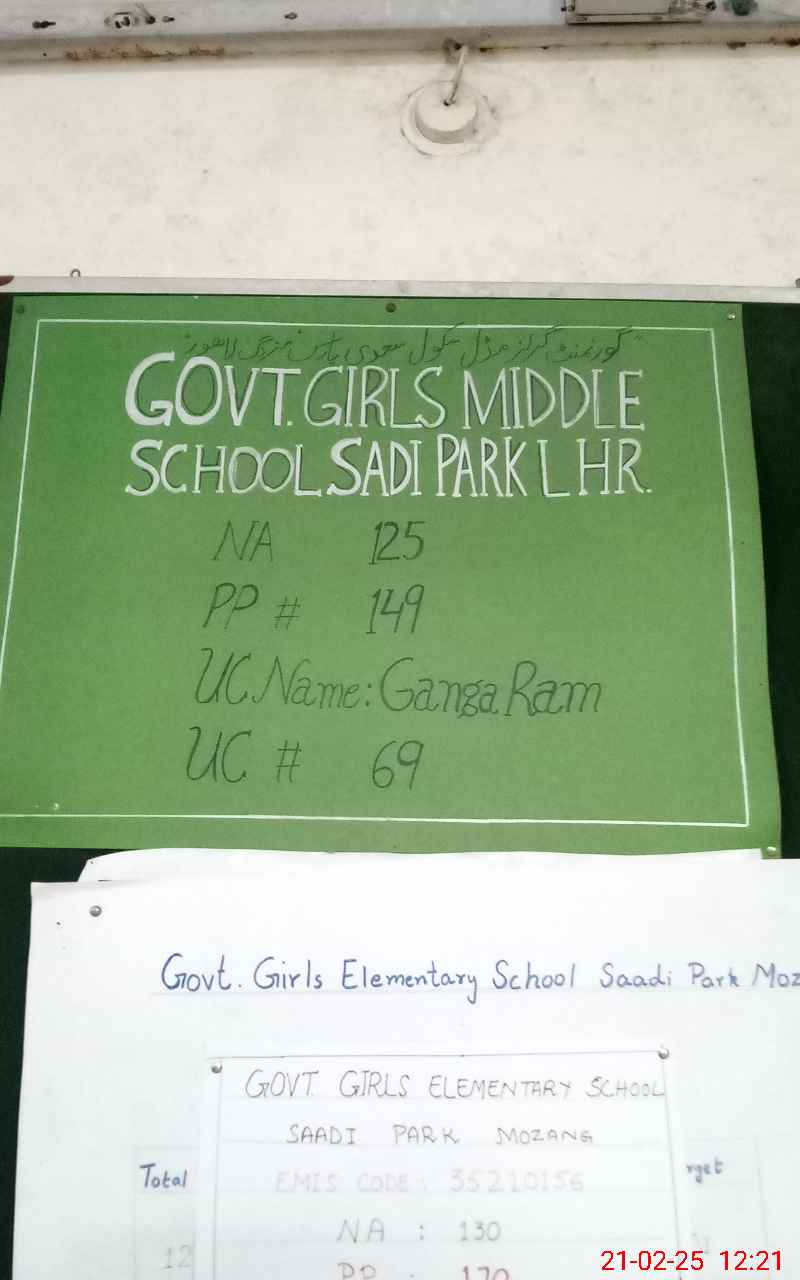 گورنمنٹ گرلز مڈل سکول سعدی پارک مزنگ لاہور
GOVT. GIRLS MIDDLE
SCHOOL SADI PARK LHR.
NA 125
PP # 149
UC Name: Ganga Ram
UC # 69
Govt. Girls Elementary School Saadi Park Moz
GOVT. GIRLS ELEMENTARY SCHOOL
SAADI PARK MOZANG
Total
rget
EMIS CODE: 35210156
NA : 130
12
PP : 170
21-02-25 12:21